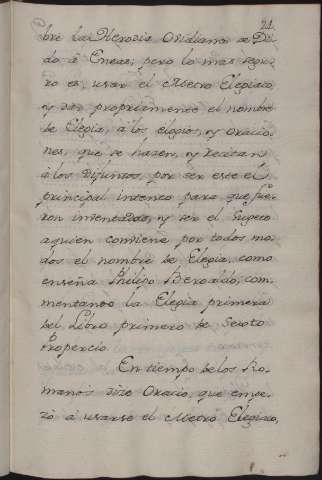 21.
bre la Heroida Ovidiana de Di-
do á Eneas; pero lo mas segu-
ro es, usar el Metro Elegiaco,
y dar propriamente el nombre
de Elegia, á los elogios, y Oracio-
nes, que se hasen, y recitan
á los Difuntos, por ser este el
principal intento para que fue-
ron inventadas, y ser el sugeto
aquien comviene por todos mo-
dos el nombre de Elegia, como
enseña Philipo Beroaldo, com-
mentando la Elegia primera
del Libro primero de Sexto
Propercio.
En tiempo de los Ro-
manos dise Oracio, que empe-
zó á usarse el Metro Elegiaco,